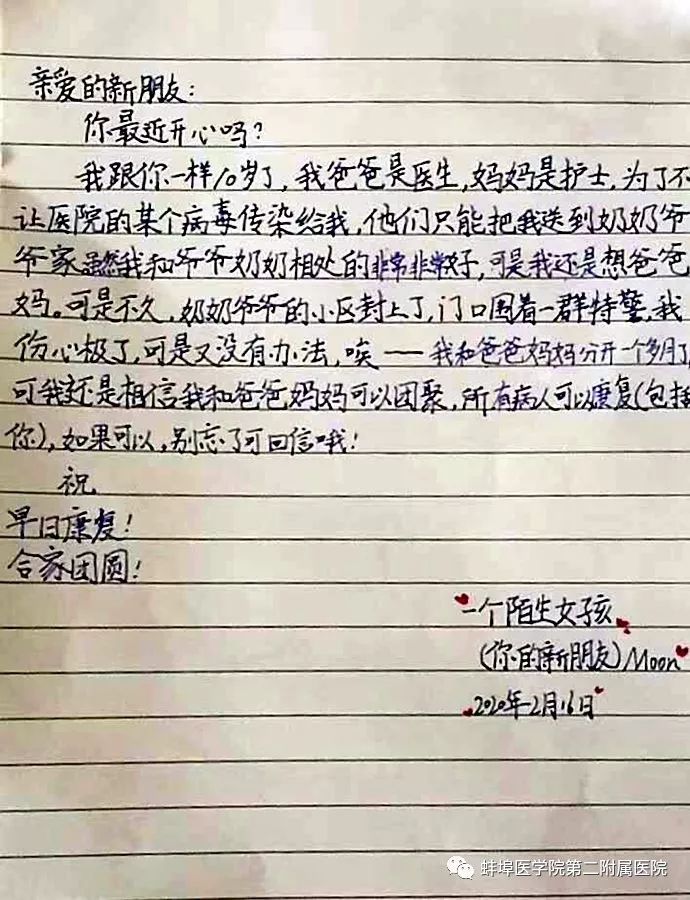 亲爱的新朋友：
你最近开心吗？
我跟你一样10岁了，我爸爸是医生，妈妈是护士，为了不
让医院的某个病毒传染给我，他们只能把我送到奶奶爷
爷家虽然我和爷爷奶奶相处的非常非常好，可是我还是想爸爸
妈。可是不久，奶奶爷爷的小区封上了，门口围着一群特警，我
伤心极了，可是又没有办法，唉——我和爸爸妈妈分开一个多月了，
可我还是相信我和爸爸妈妈可以团聚，所有病人可以康复（包括
你），如果可以，别忘了可回信哦！
祝
早日康复！
合家团圆！
一个陌生女孩
（你的新朋友）Moon
2020年2月16日
蚌埠医学院第二附属医院